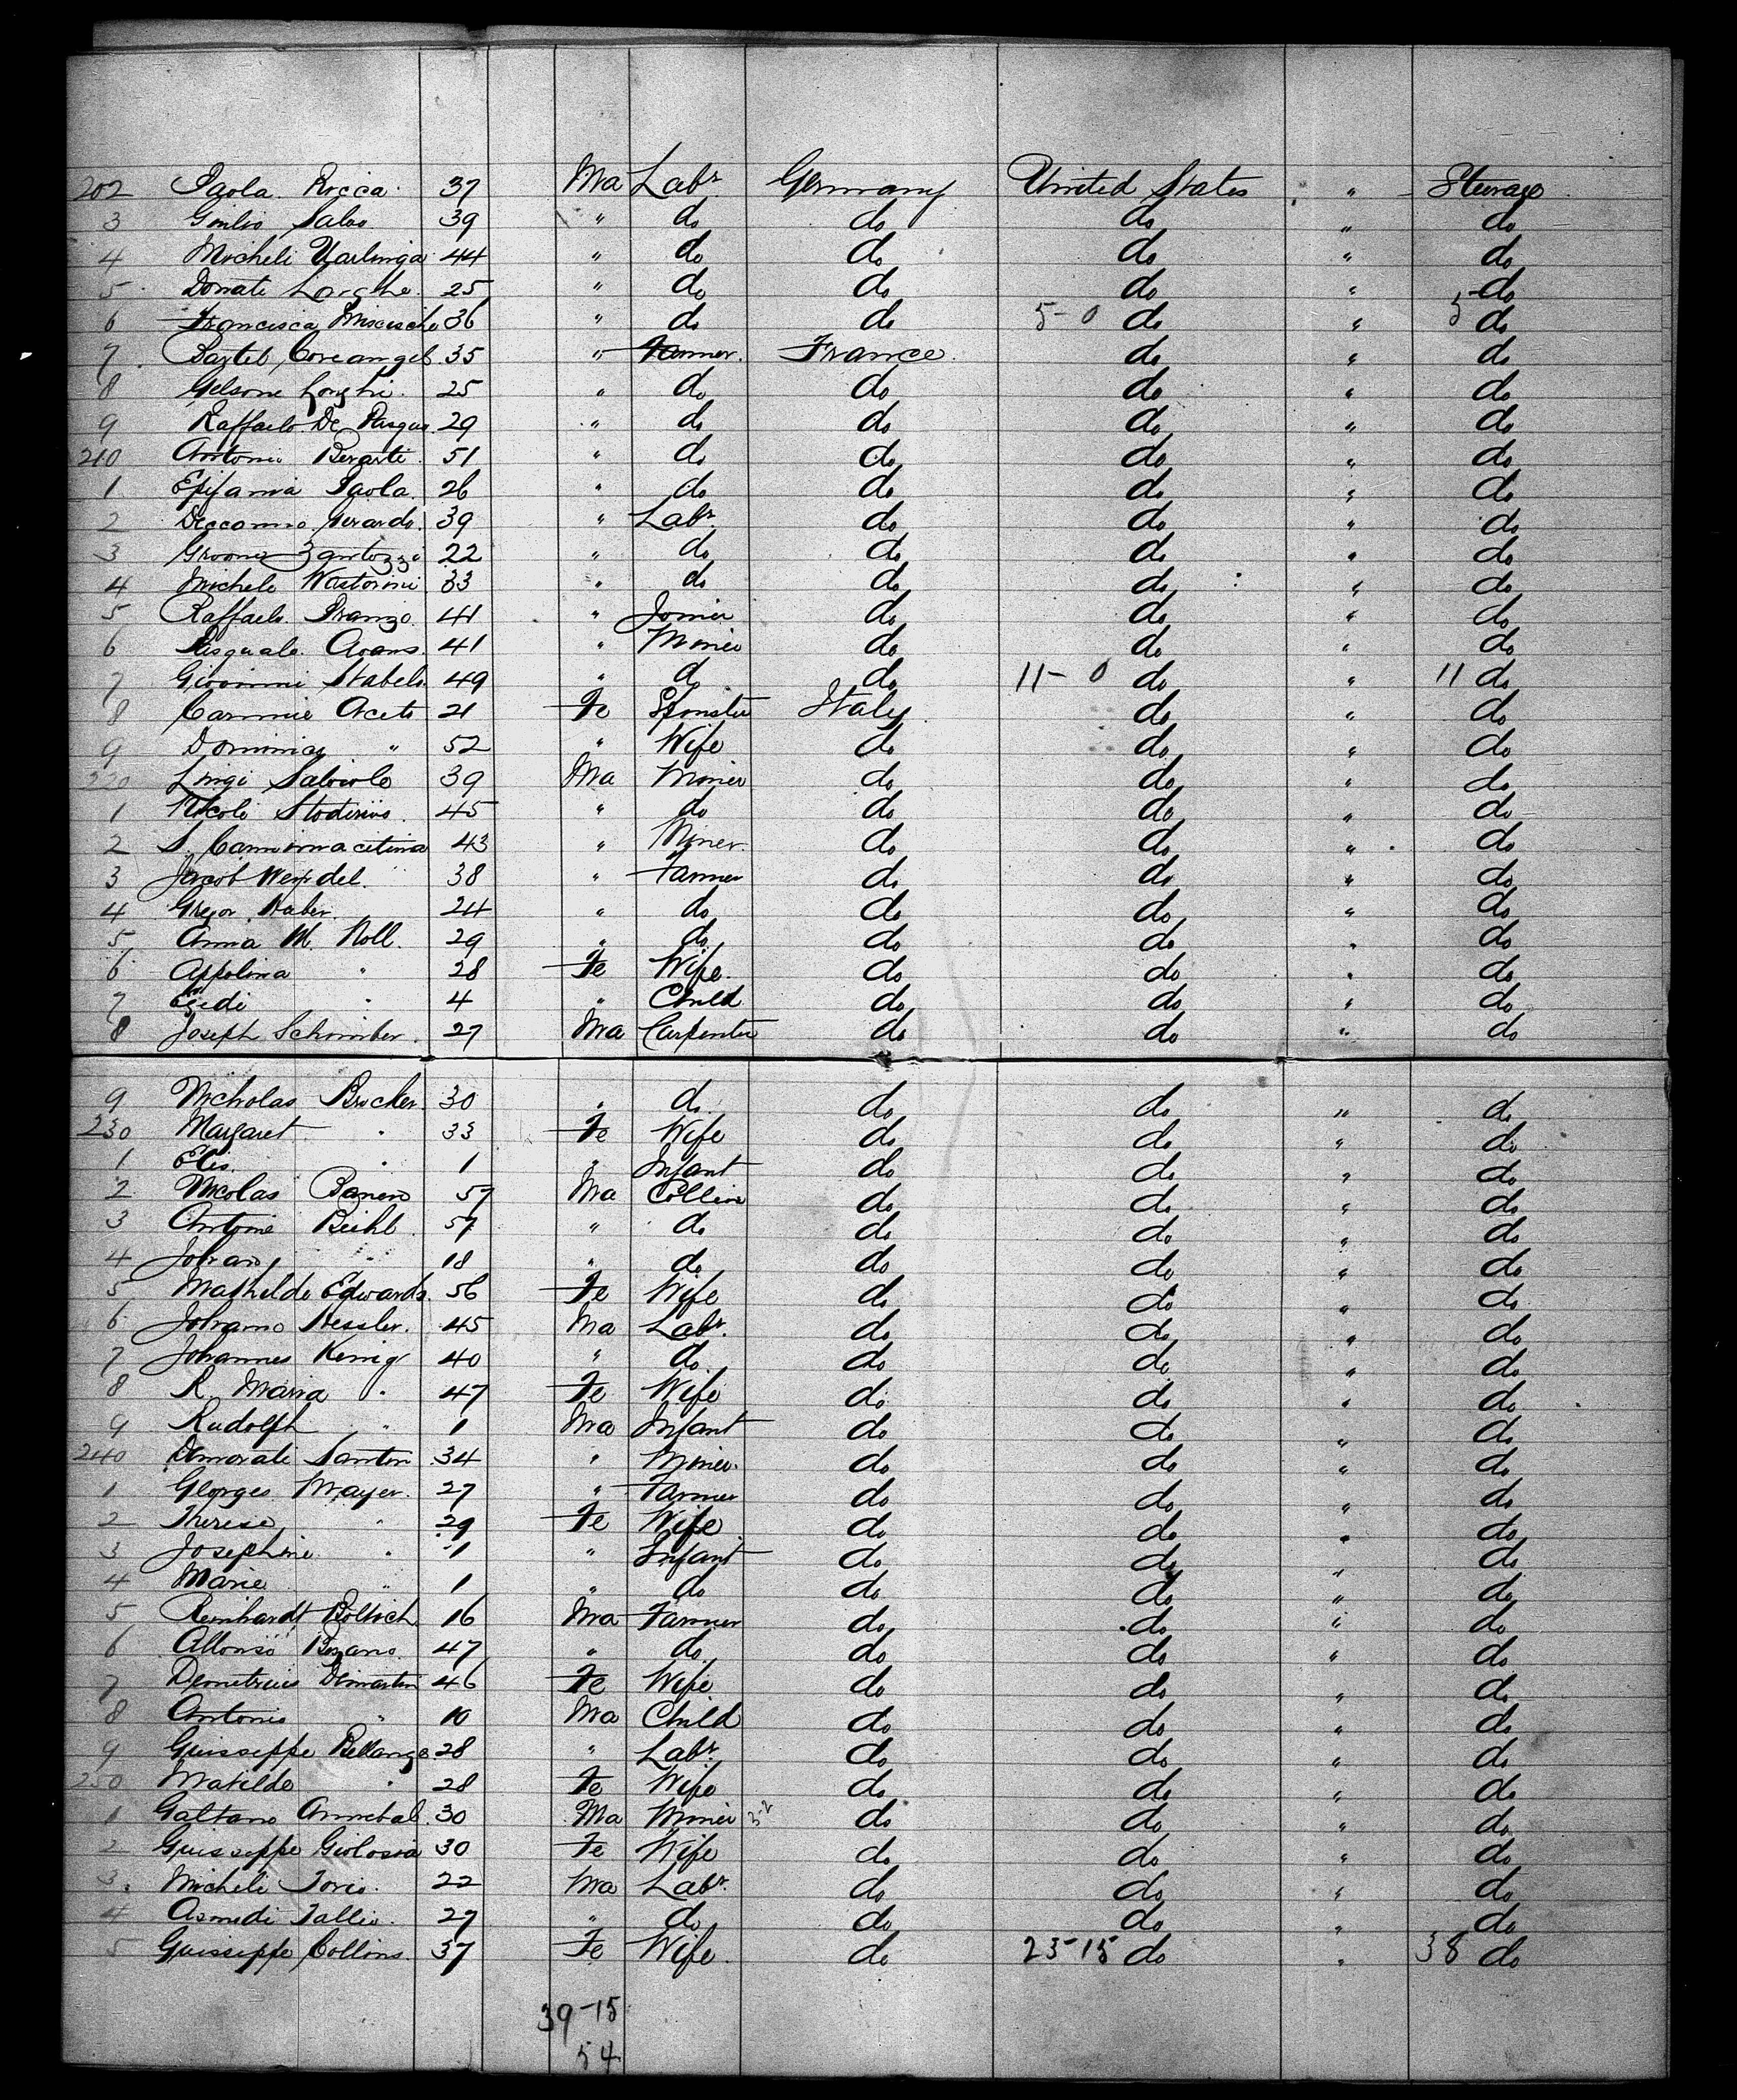 202 Paola Rocca 37 Ma Labr Germany United States " Steerage
3 Gulio Salvo 39 " do do do " do
4 Micheli 44 " do do do " do
5 Donati Longhe 25 " do do do " do
6 Francisca 36 " do do 5-0 do " 5 do
7 35 " Farmer France do " do
8 Gelsone Longhi 25 " do do do " do
9 Raffaelo De Pasqua 29 " do do do " do
210 Antonio Berarti 51 " do do do " do
1 Epifania Paola 26 " do do do " do
2 Gerardo 39 " Labr do do " do
3 Zantozzi 22 " do do do " do
4 Michele 33 " do do do " do
5 Raffaelo Pranzo 41 " Joiner do do " do
6 Pasquale 41 " Miner do do " do
7 Giovanni Stabelo 49 " do do 11-0 do " 11 do
8 Carmie Aceto 21 Fe Spinster Italy do " do
9 Dominica " 52 " Wife do do " do
220 Luigi 39 Ma Miner do do " do
1 Nicoli 45 " do do do " do
2 43 " Miner do do " do
3 Jacob Weyrdel 38 " Farmer do do " do
4 Gregor Haber 24 " do do do " do
5 Anna M. Noll 29 " do do do " do
6 Appolina " 28 Fe Wife do do " do
7 Egidi " 4 " Child do do " do
8 Joseph Schomber 27 Ma Carpenter do do " do
9 Nicholas Brocker 30 " do do do " do
230 Margaret " 33 Fe Wife do do " do
1 Elis " 1 " Infant do do " do
2 Nicolas 57 Ma Collier do do " do
3 Antoine Beihl 57 " do do do " do
4 Johan " 18 " do do do " do
5 Mathilde Edwards 56 Fe Wife do do " do
6 Johann Kessler 45 Ma Labr do do " do
7 Johannes Kenig 40 " do do do " do
8 R. Maria " 47 Fe Wife do do " do
9 Rudolph " 1 Ma Infant do do " do
240 Santon 34 " Miner do do " do
1 Georges Mayer 27 " Farmer do do " do
2 Therese " 29 Fe Wife do do " do
3 Josephine " 1 " Infant do do " do
4 Marie " 1 " do do do " do
5 Reinhardt 16 Ma Farmer do do " do
6 Allonso 47 " do do do " do
7 Demetrius Dimartin 46 Fe Wife do do " do
8 Antonio " 10 Ma Child do do " do
9 Guisseppe Bellange 28 " Labr do do " do
250 Matilde " 28 Fe Wife do do " do
1 Galtano Annebal 30 Ma Miner do do " do
2 Guisseppe Giolosia 30 Fe Wife do do " do
3 Micheli Torio 22 Ma Labr do do " do
4 Tallio 27 " do do do " do
5 Guisseppe Collins 37 Fe Wife do 23-15 do " 38 do
39-15
54